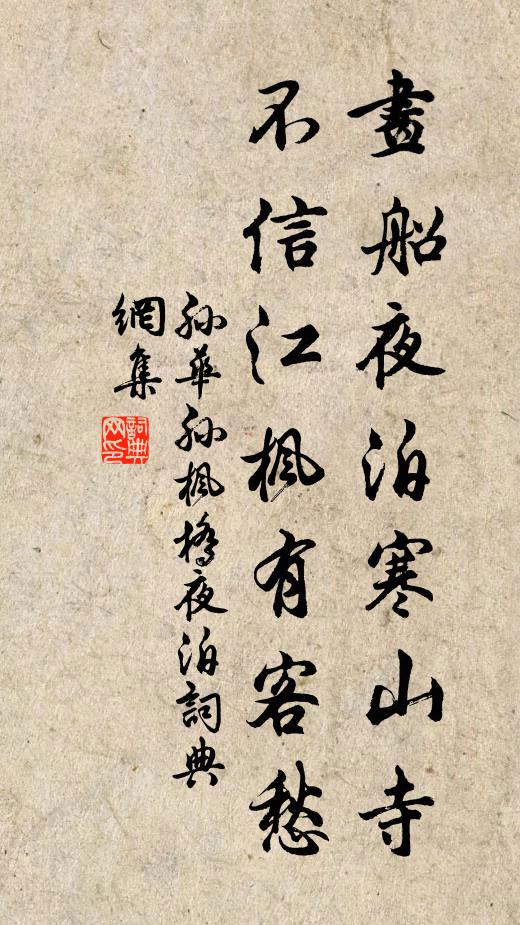 畫船夜泊寒山寺
不信江楓有客愁
孫華孫楓橋夜泊詞典
網集
詞典
网印